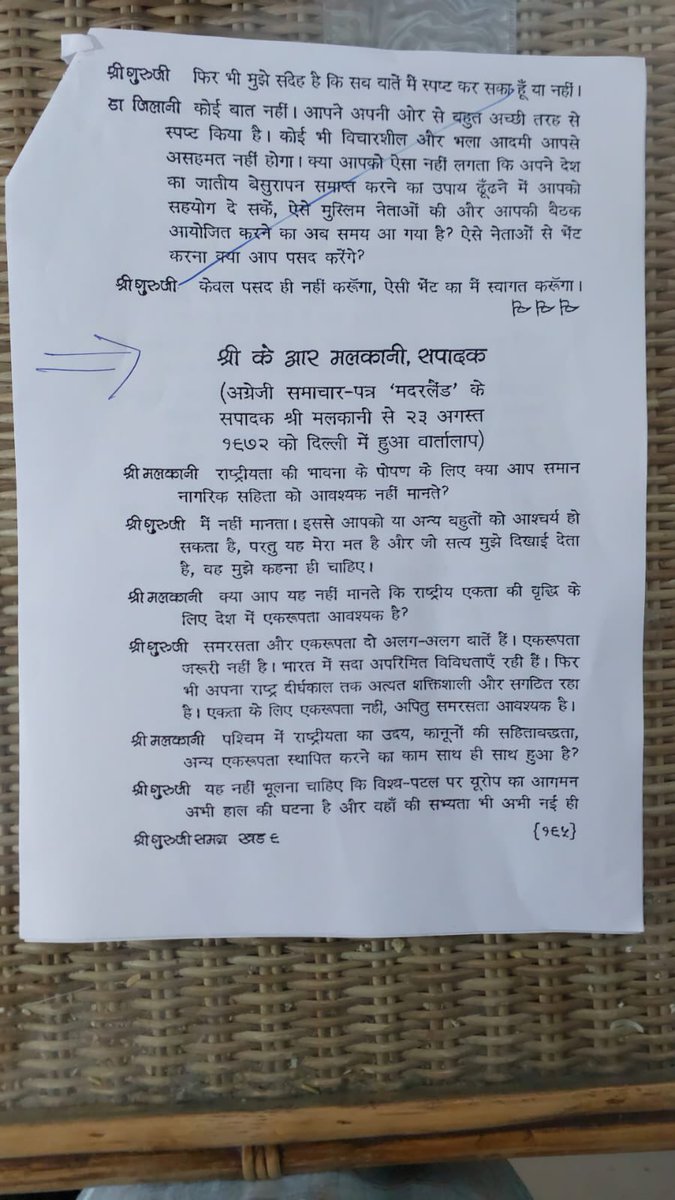 श्रीगुरुजी फिर भी मुझे संदेह है कि सब बातें मैं स्पष्ट कर सका हूँ या नहीं।
डा जिलानी कोई बात नहीं। आपने अपनी ओर से बहुत अच्छी तरह से
स्पष्ट किया है। कोई भी विचारशील और भला आदमी आपसे
असहमत नहीं होगा। क्या आपको ऐसा नहीं लगता कि अपने देश
का जातीय बेसुरापन समाप्त करने का उपाय ढूँढने में आपको
सहयोग दे सकें, ऐसे मुस्लिम नेताओं की और आपकी बैठक
आयोजित करने का अब समय आ गया है? ऐसे नेताओं से भेंट
करना क्या आप पसद करेंगे?
श्रीगुरुजी केवल पसद ही नहीं करूँगा, ऐसी भेंट का मैं स्वागत करूँगा।
श्री के आर मलकानी, सपादक
(अग्रेजी समाचार-पत्र 'मदरलैंड' के
सपादक श्री मलकानी से २३ अगस्त
१९७२ को दिल्ली में हुआ वार्तालाप)
श्री मलकानी राष्ट्रीयता की भावना के पोषण के लिए क्या आप समान
नागरिक सहिता को आवश्यक नहीं मानते?
श्रीगुरुजी मैं नहीं मानता। इससे आपको या अन्य बहुतों को आश्चर्य हो
सकता है, परतु यह मेरा मत है और जो सत्य मुझे दिखाई देता
है, वह मुझे कहना ही चाहिए।
श्री मलकानी क्या आप यह नहीं मानते कि राष्ट्रीय एकता की वृद्धि के
लिए देश में एकरूपता आवश्यक है?
श्रीगुरुजी समरसता और एकरूपता दो अलग-अलग बातें हैं। एकरूपता
जरूरी नहीं है। भारत में सदा अपरिमित विविधताएँ रही हैं। फिर
भी अपना राष्ट्र दीर्घकाल तक अत्यत शक्तिशाली और सगठित रहा
है। एकता के लिए एकरूपता नहीं, अपितु समरसता आवश्यक है।
श्री मलकानी पश्चिम में राष्ट्रीयता का उदय, कानूनों की सहिताबद्धता,
अन्य एकरूपता स्थापित करने का काम साथ ही साथ हुआ है?
श्रीगुरुजी यह नहीं भूलना चाहिए कि विश्व-पटल पर यूरोप का आगमन
अभी हाल की घटना है और वहाँ की सभ्यता भी अभी नई ही
श्रीगुरुजी समग्र खड ९ {१९५}